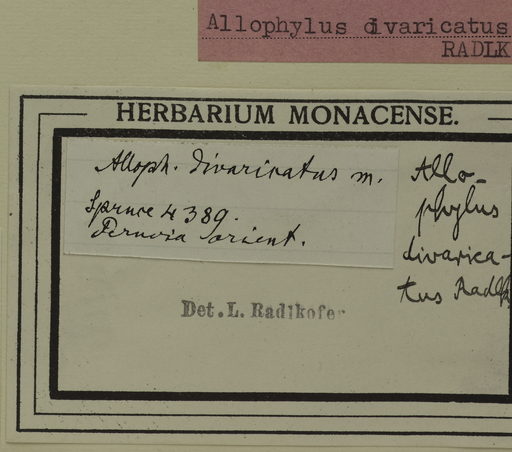 Allophylus divaricatus
RADLK
HERBARIUM MONACENSE.
Alloph. divaricatus m.
Spruce 4389.
Peruvia orient.
Allo-
phylus
divarica-
tus Radlk
Det. L. Radlkofer